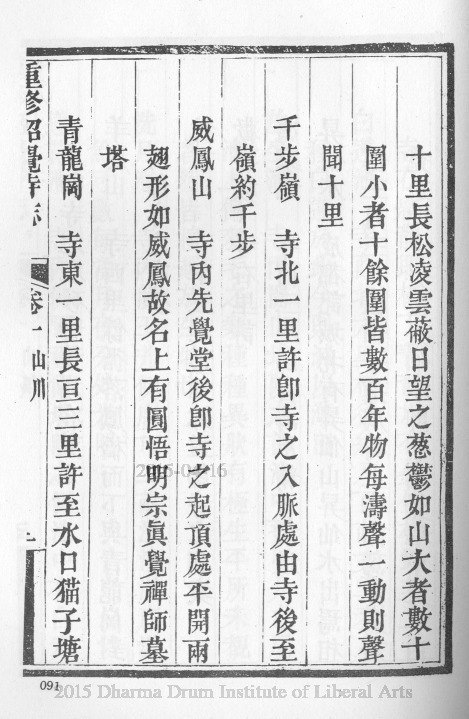 十里長松凌雲蔽日望之葱鬱如山大者數十
圍小者十餘圍皆數百年物每濤聲一動則聲
聞十里
千步嶺　寺北一里許卽寺之入脈處由寺後至
嶺約千步
威鳳山　寺內先覺堂後卽寺之起頂處平開兩
翅形如威鳳故名上有圓悟明宗眞覺禪師墓
塔
青龍岡　寺東一里長亘三里許至水口猫子塘
重修昭覺寺志　卷一　山川
091
2015 Dharma Drum Institute of Liberal Arts